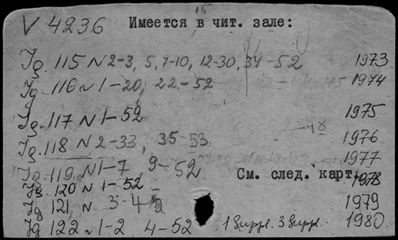 V 4236 Имеется в чит. зале:
Jg. 115 N 2-3, 5, 7-10, 12-30, 34-52 1973
Jg. 116 N 1-20, 22-52 1974
Jg. 117 N 1-52 1975
Jg. 118 N 2-33, 35-53 1976
Jg. 119 N 1-7 9-52 1977
Jg. 120 N 1-52 См. след. карт. 1978
Jg. 121 N 3-4 1979
Jg. 122 N 1-2 4-52 1 Suppl. 3 Suppl. 1980